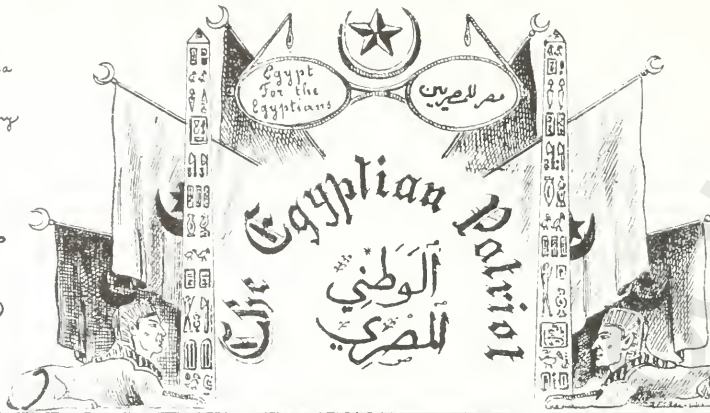 Egypt
For the
Egyptians
مصر للمصريين
The Egyptian Patriot
اَلوَطَنِي
المَصْرِي